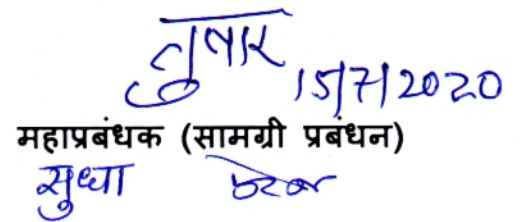 तुषार
15/7/2020
महाप्रबंधक (सामग्री प्रबंधन)
सुधा